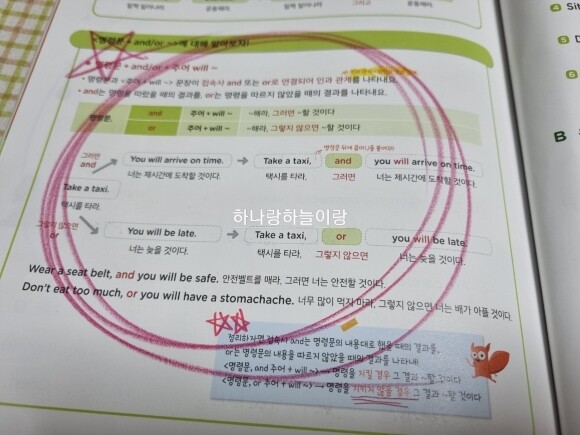 명령문 + and/or ~>에 대해 알아보자!
명령문 + and/or + 주어 will ~
• 명령문과 <주어 + will ~> 문장이 접속사 and 또는 or로 연결되어 인과 관계를 나타내요.
• and는 명령을 따랐을 때의 결과를, or는 명령을 따르지 않았을 때의 결과를 나타내요.
명령문, and 주어 + will ~ ~해라, 그러면 ~할 것이다
or 주어 + will ~ ~해라, 그렇지 않으면 ~할 것이다
명령문 뒤에 콤마(,)를 붙여요!
그러면 and You will arrive on time. Take a taxi, and you will arrive on time.
너는 제시간에 도착할 것이다. 택시를 타라, 그러면 너는 제시간에 도착할 것이다.
Take a taxi.
택시를 타라.
하나랑하늘이랑
그렇지 않으면 or You will be late. Take a taxi, or you will be late.
너는 늦을 것이다. 택시를 타라, 그렇지 않으면 너는 늦을 것이다.
Wear a seat belt, and you will be safe. 안전벨트를 매라, 그러면 너는 안전할 것이다.
Don't eat too much, or you will have a stomachache. 너무 많이 먹지 마라, 그렇지 않으면 너는 배가 아플 것이다.
정리하자면 접속사 and는 명령문의 내용대로 했을 때의 결과를,
or는 명령문의 내용을 따르지 않았을 때의 결과를 나타내!
<명령문, and 주어 + will ~> → 명령을 지킬 경우 그 결과 ~할 것이다
<명령문, or 주어 + will ~> → 명령을 지키지 않을 경우 그 결과 ~할 것이다
4 Sit
5 D
6
B